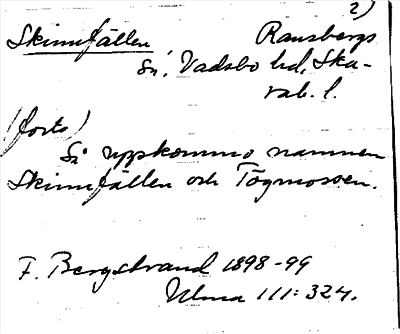 2)
Skinnfällen Ransbergs
sn, Vadsbo hd, Ska-
rab. l.
(forts)
Så uppkommo namnen
Skinnfällen och Tågmossen.
F. Bergstrand 1898-99
Ulma 111:324.